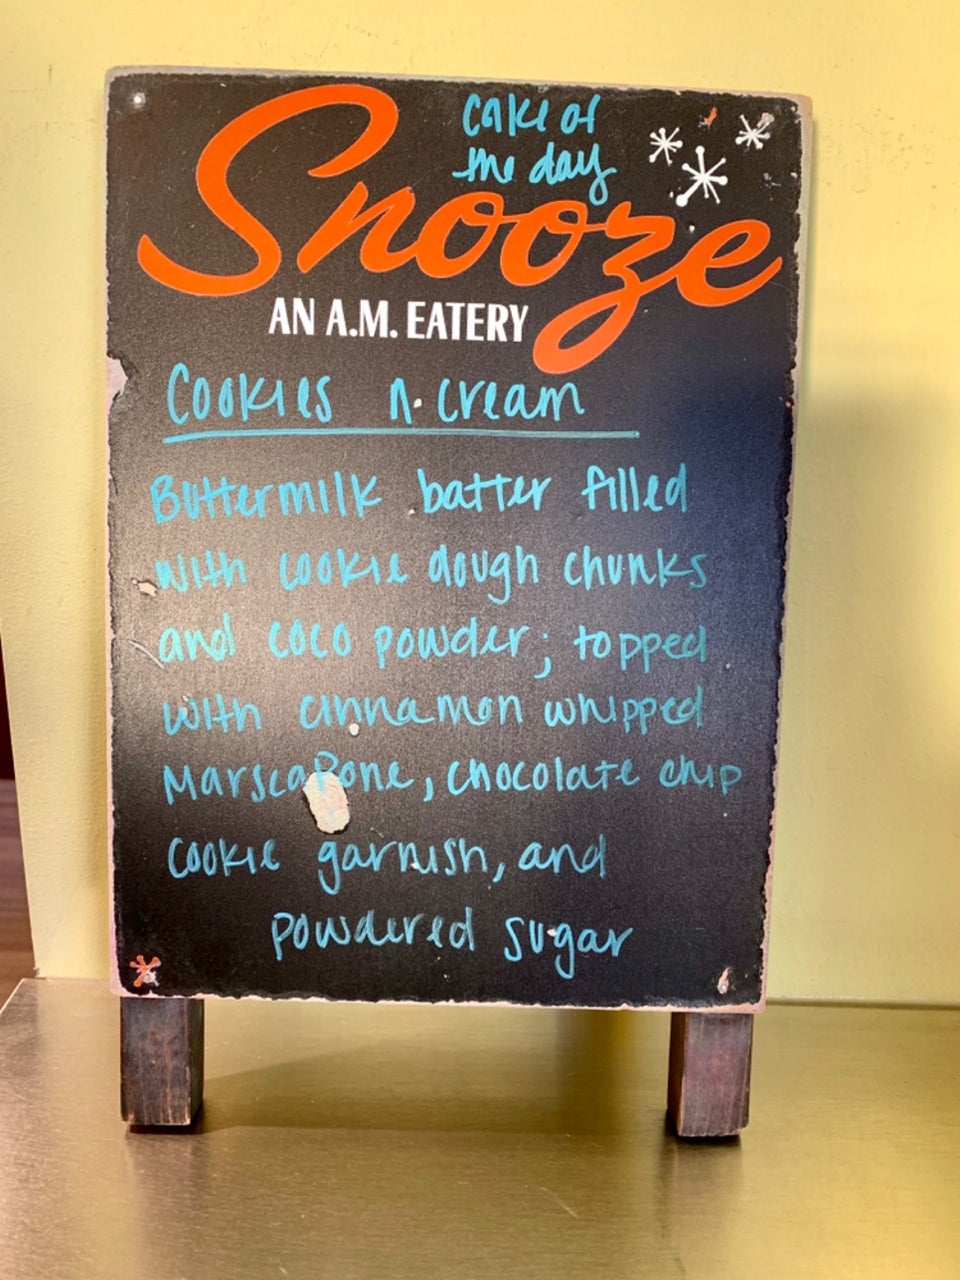 cake of
the day
Snooze
AN A.M. EATERY
Cookies n. cream
Buttermilk batter filled
with cookie dough chunks
and coco powder; topped
with cinnamon whipped
MarscaPone, chocolate chip
cookie garnish, and
powdered sugar